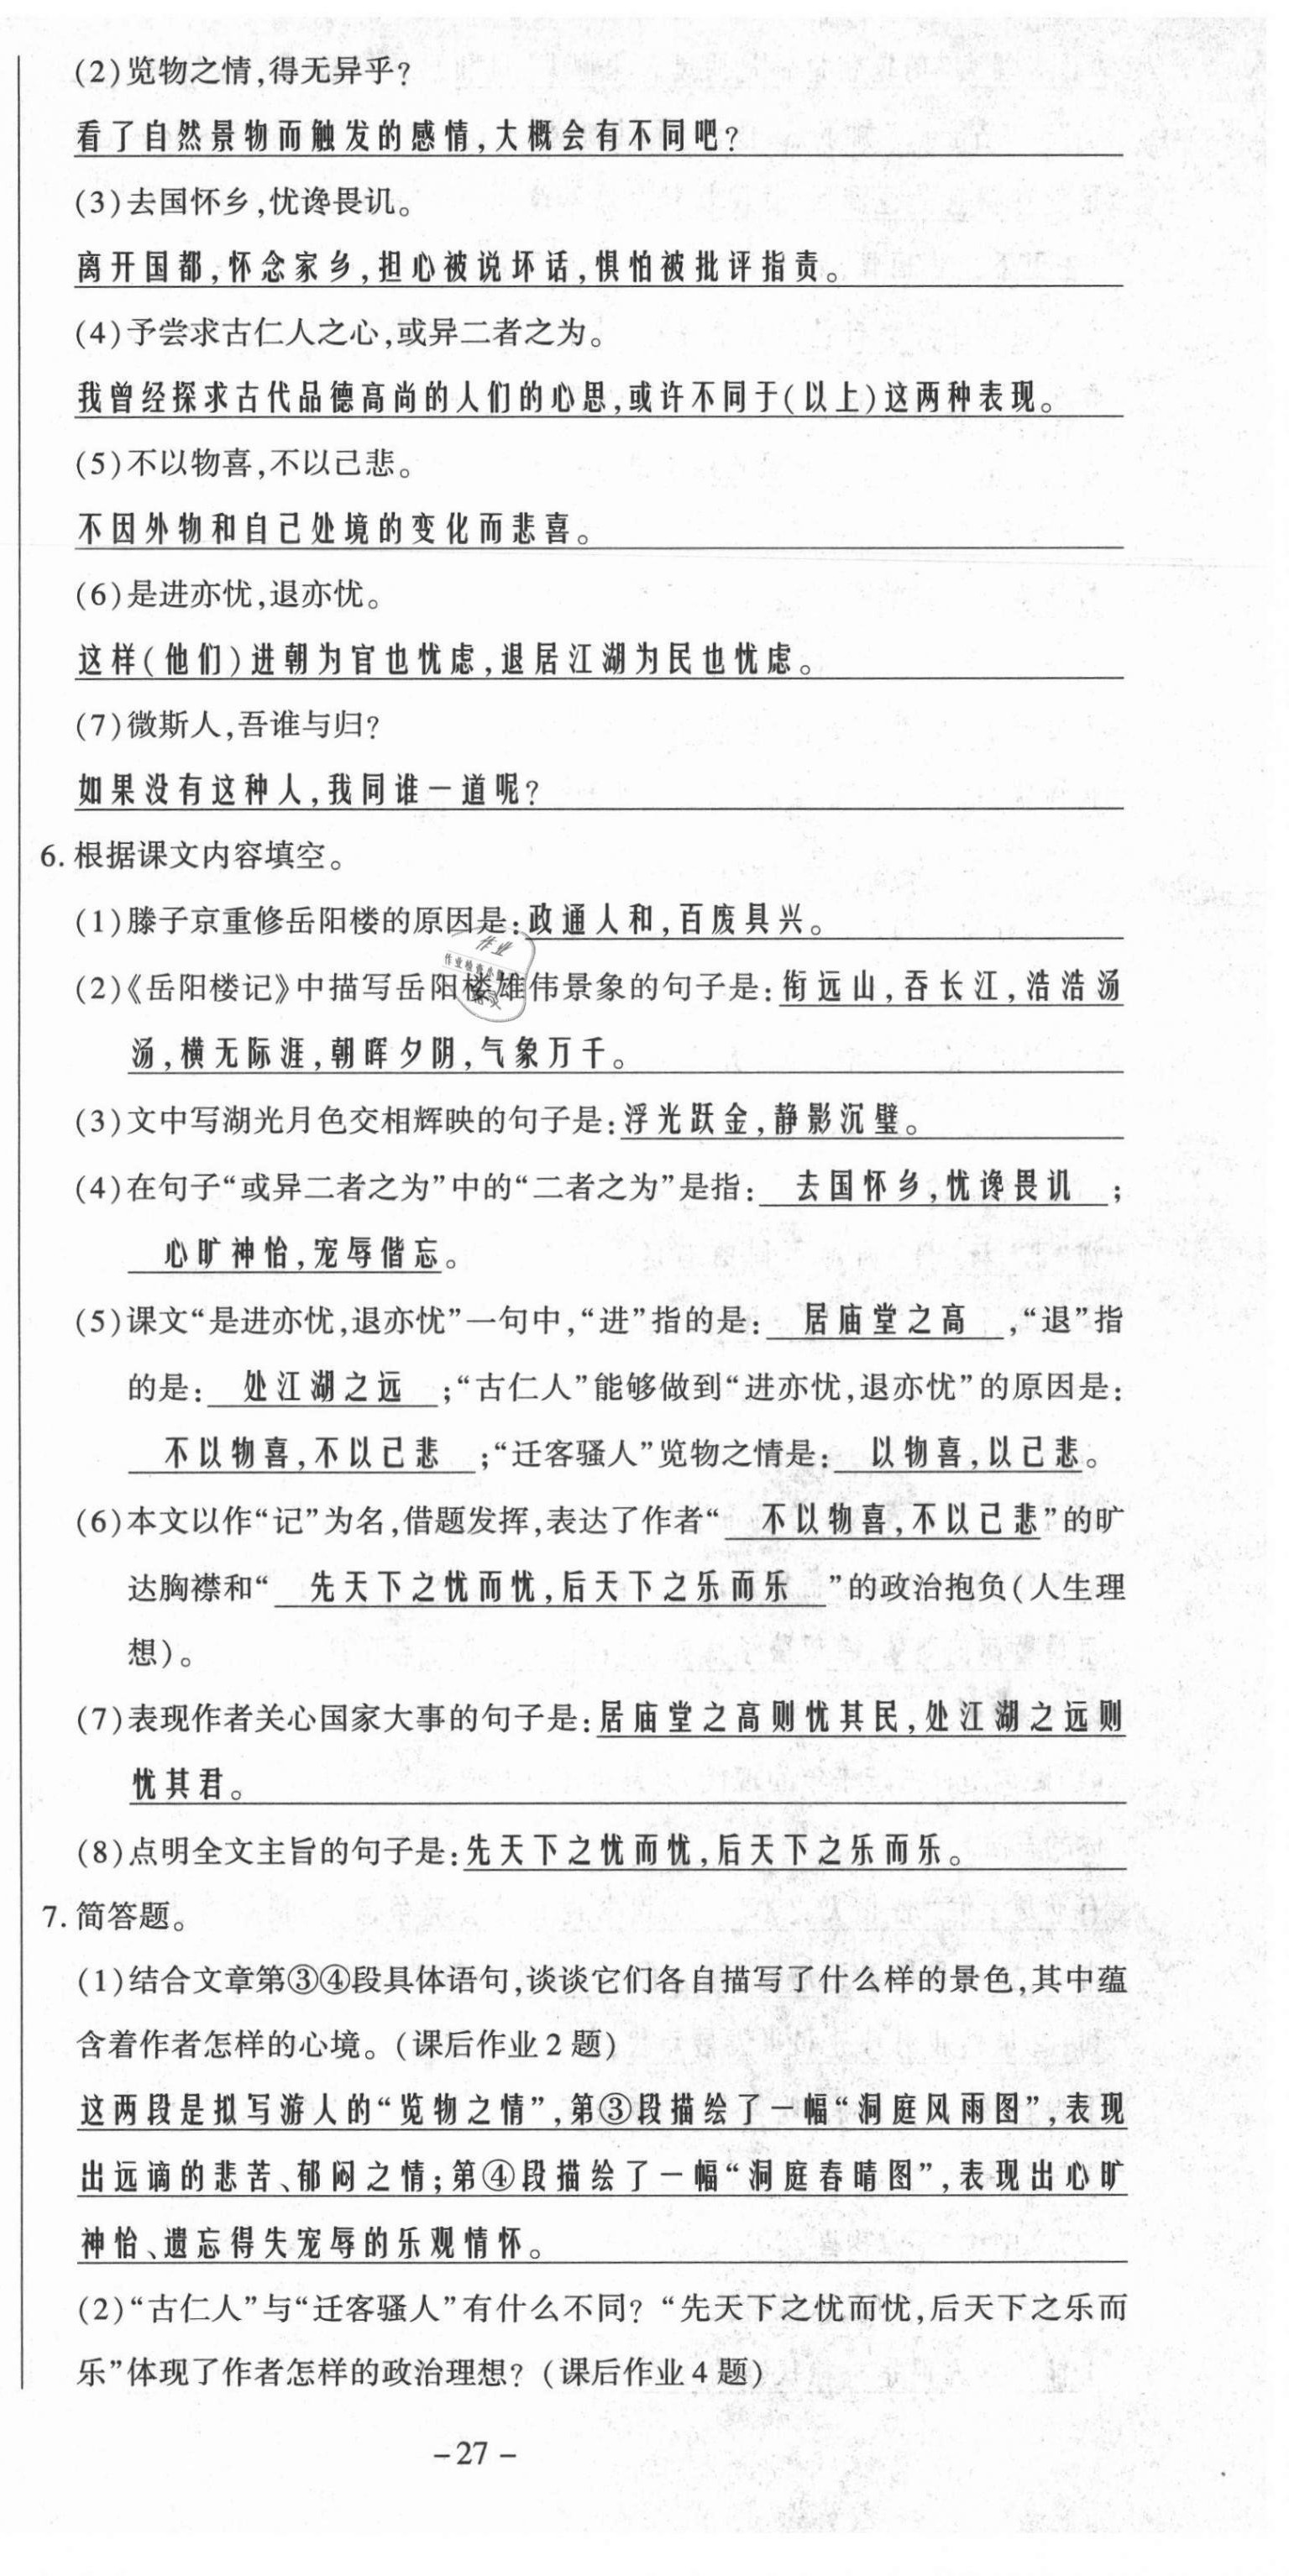 (2)览物之情,得无异乎?
看了自然景物而触发的感情,大概会有不同吧?
(3)去国怀乡,忧谗畏讥。
离开国都,怀念家乡,担心被说坏话,惧怕被批评指责。
(4)予尝求古仁人之心,或异二者之为。
我曾经探求古代品德高尚的人们的心思,或许不同于(以上)这两种表现。
(5)不以物喜,不以己悲。
不因外物和自己处境的变化而悲喜。
(6)是进亦忧,退亦忧。
这样(他们)进朝为官也忧虑,退居江湖为民也忧虑。
(7)微斯人,吾谁与归?
如果没有这种人,我同谁一道呢?
6. 根据课文内容填空。
(1)滕子京重修岳阳楼的原因是:政通人和,百废具兴。
作业
(2)《岳阳楼记》中描写岳阳楼雄伟景象的句子是:衔远山,吞长江,浩浩汤
汤,横无际涯,朝晖夕阴,气象万千。
(3)文中写湖光月色交相辉映的句子是:浮光跃金,静影沉璧。
(4)在句子“或异二者之为”中的“二者之为”是指: 去国怀乡,忧谗畏讥 ;
心旷神怡,宠辱偕忘。
(5)课文“是进亦忧,退亦忧”一句中,“进”指的是: 居庙堂之高 ,“退”指
的是: 处江湖之远 ;“古仁人”能够做到“进亦忧,退亦忧”的原因是:
不以物喜,不以己悲 ;“迁客骚人”览物之情是: 以物喜,以己悲。
(6)本文以作“记”为名,借题发挥,表达了作者“ 不以物喜,不以己悲”的旷
达胸襟和“ 先天下之忧而忧,后天下之乐而乐 ”的政治抱负(人生理
想)。
(7)表现作者关心国家大事的句子是:居庙堂之高则忧其民,处江湖之远则
忧其君。
(8)点明全文主旨的句子是:先天下之忧而忧,后天下之乐而乐。
7. 简答题。
(1)结合文章第③④段具体语句,谈谈它们各自描写了什么样的景色,其中蕴
含着作者怎样的心境。(课后作业2题)
这两段是拟写游人的“览物之情”,第③段描绘了一幅“洞庭风雨图”,表现
出远谪的悲苦、郁闷之情;第④段描绘了一幅“洞庭春晴图”,表现出心旷
神怡、遗忘得失宠辱的乐观情怀。
(2)“古仁人”与“迁客骚人”有什么不同? “先天下之忧而忧,后天下之乐而
乐”体现了作者怎样的政治理想? (课后作业4题)
-27-